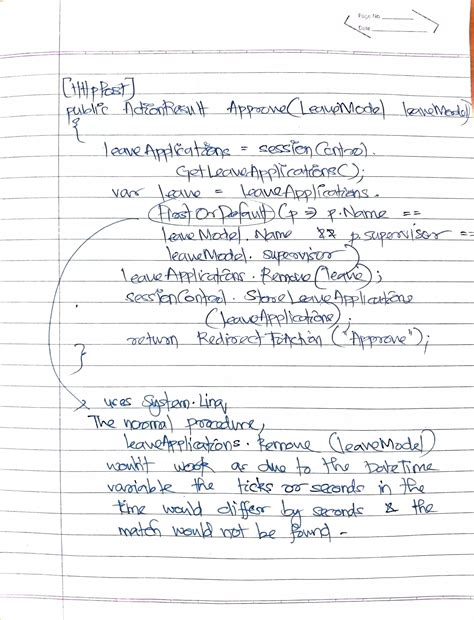 Page No
Date
[HttpPost]
public ActionResult Approve(LeaveModel leaveModel)
{
leaveApplications = sessionControl.
GetLeaveApplications();
var leave = leaveApplications.
FirstOrDefault(p => p.Name ==
leaveModel.Name && p.supervisor ==
leaveModel.supervisor)
leaveApplications.Remove(leave);
sessionControl.StoreLeaveApplications
(leaveApplications);
return RedirectToAction("Approve");
}
uses System.Linq
The normal procedure,
leaveApplications.Remove(leaveModel)
won't work as due to the DateTime
variable the ticks or seconds in the
time would differ by seconds & the
match would not be found -